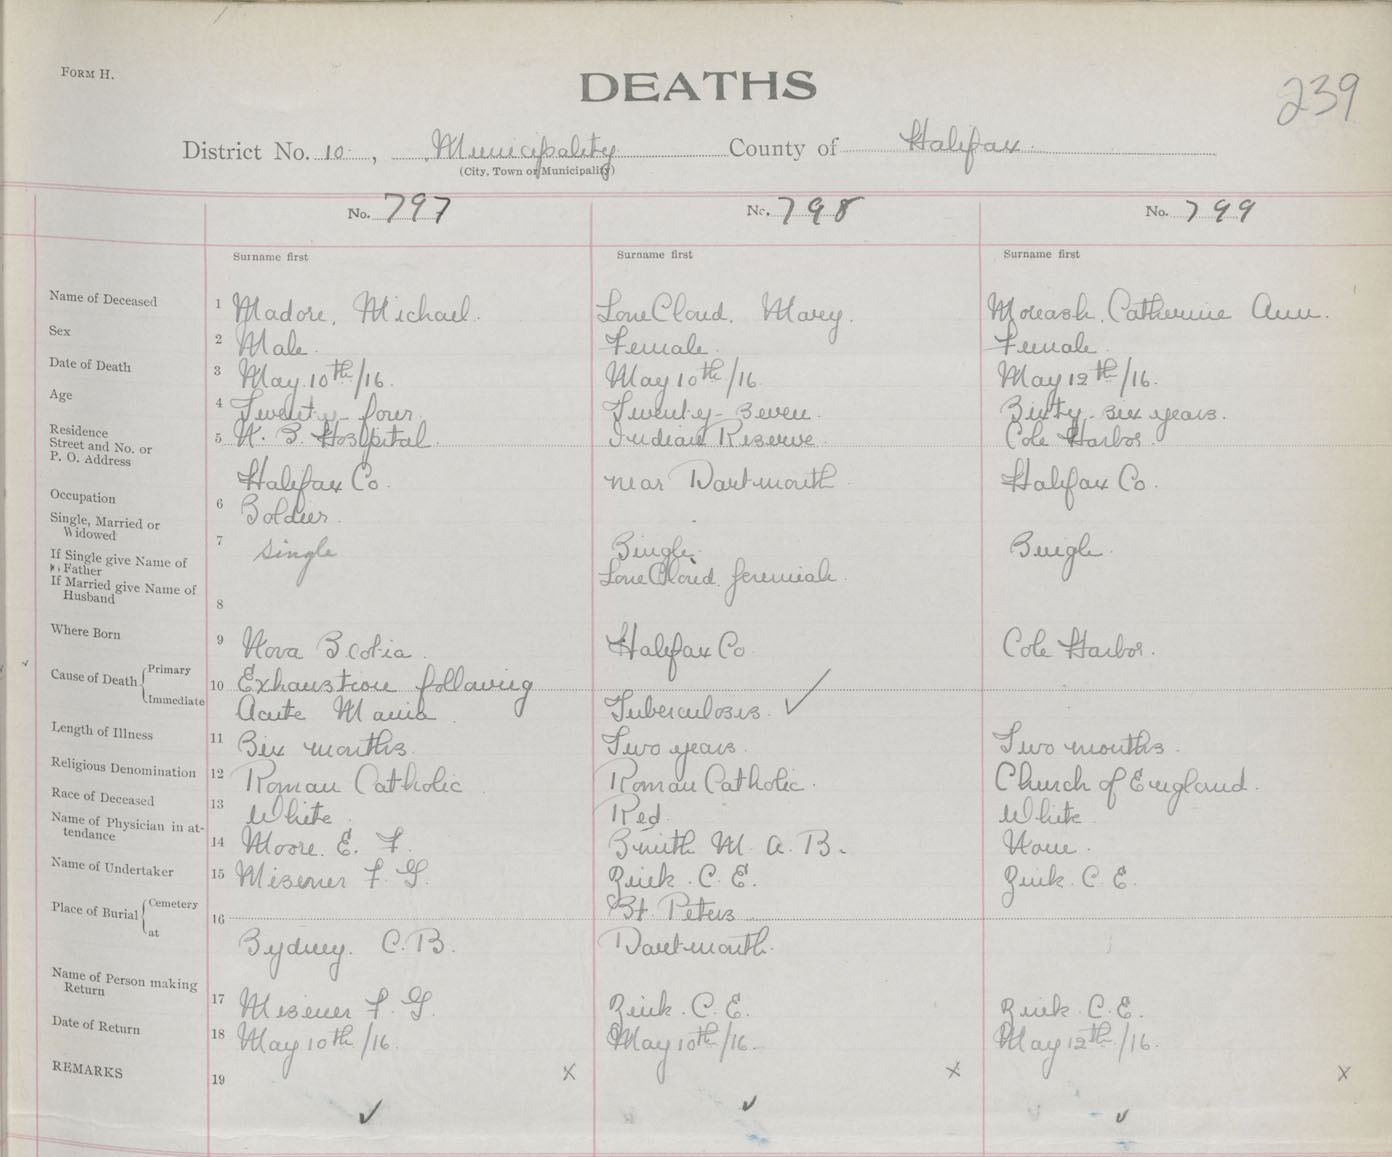 FORM H.
DEATHS
239
District No. 10, Municipality County of Halifax
(City, Town or Municipality)
No. 797 No. 798 No. 799
Surname first Surname first Surname first
Name of Deceased 1 Madore, Michael. LoneCloud, Mary. Moreash, Catherine Ann.
Sex 2 Male. Female. Female.
Date of Death 3 May 10th/16. May 10th/16. May 12th/16.
Age 4 Twenty-four. Twenty-Seven. Sixty-six years.
Residence Street and No. or P. O. Address 5 N. S. Hospital. Indian Reserve Cole Harbor.
Halifax Co. near Dartmouth. Halifax Co.
Occupation 6 Soldier.
Single, Married or Widowed 7 Single Single. Single.
If Single give Name of Father LoneCloud, Jeremiah.
If Married give Name of Husband 8
Where Born 9 Nova Scotia. Halifax Co. Cole Harbor.
Cause of Death { Primary 10 Exhaustion following
Immediate Acute Mania. Tuberculosis. ✓
Length of Illness 11 Six months. Two years. Two months.
Religious Denomination 12 Roman Catholic. Roman Catholic. Church of England.
Race of Deceased 13 White. Red. White.
Name of Physician in attendance 14 Moore. E. F. Smith M. A. B. None.
Name of Undertaker 15 Misener F. G. Zink. C. E. Zink. C. E.
Place of Burial { Cemetery 16 St. Peters
at Sydney. C. B. Dartmouth.
Name of Person making Return 17 Misener F. G. Zink. C. E. Zink. C. E.
Date of Return 18 May 10th/16. May 10th/16. May 12th/16.
REMARKS 19 x x x
✓ ✓ ✓